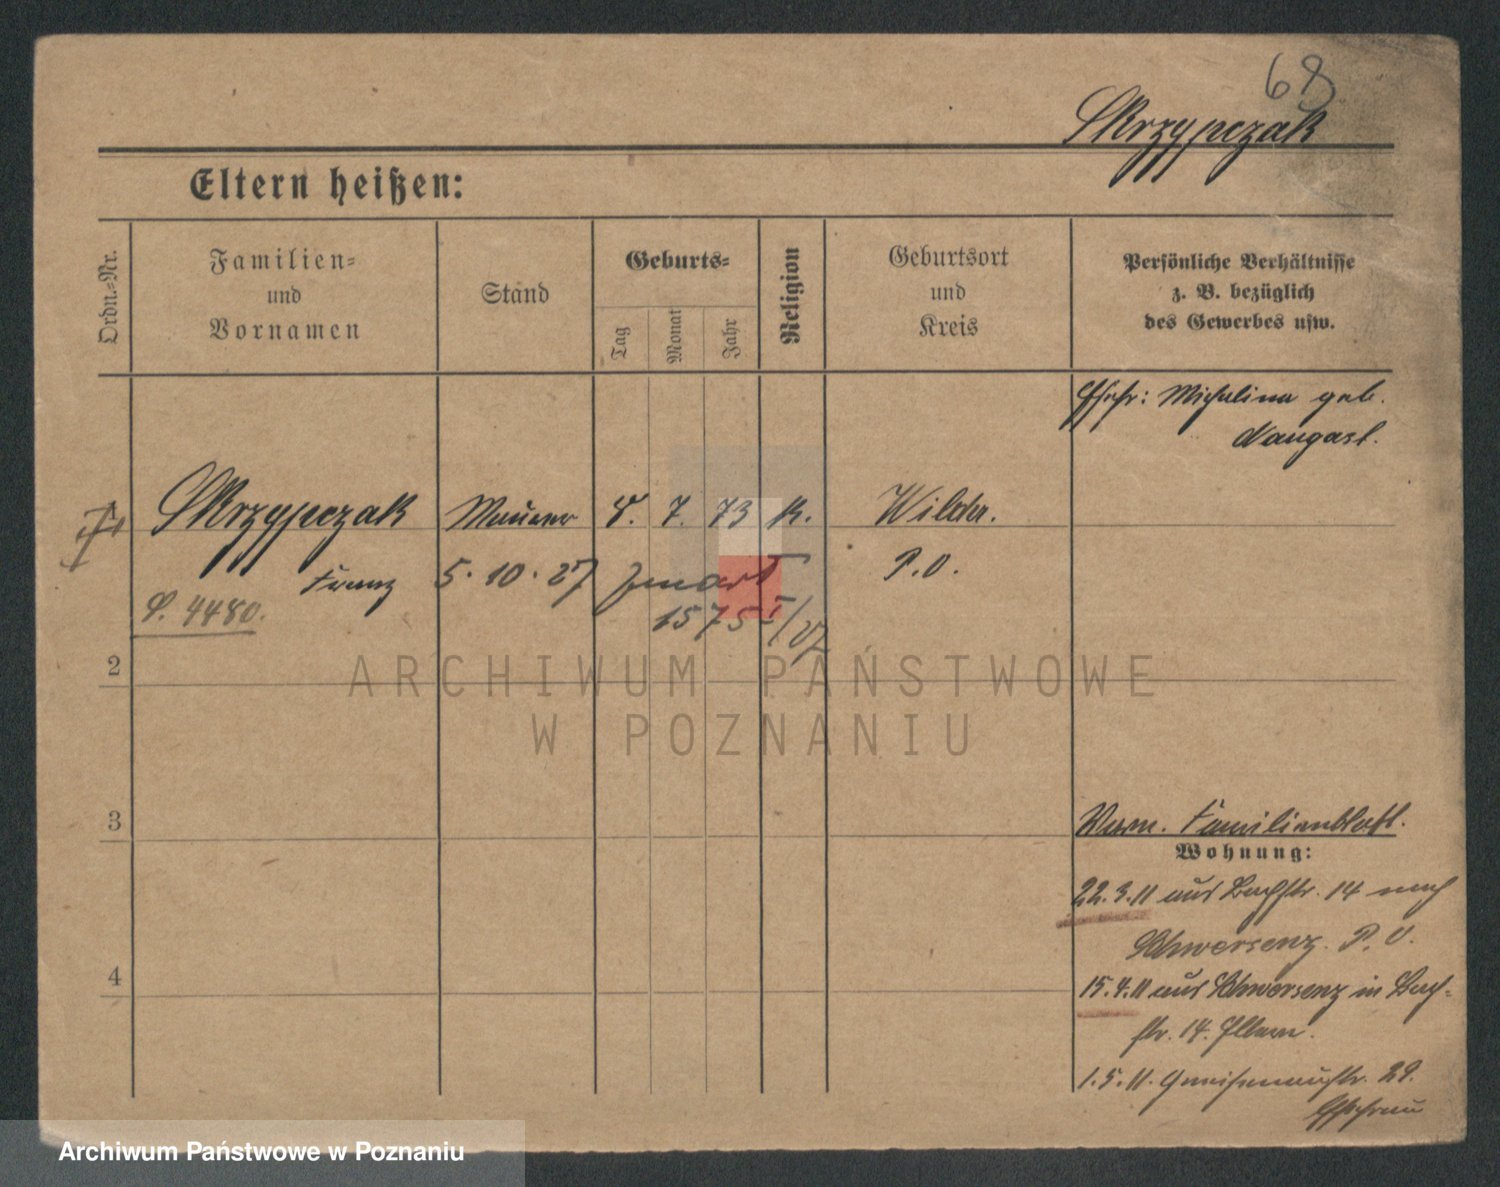 68
Skrzypczak
Eltern heißen:
Ordn.-Nr.
Familien-
und
Vornamen
Stand
Geburts-
Tag
Monat
Jahr
Religion
Geburtsort
und
Kreis
Persönliche Verhältnisse
z. B. bezüglich
des Gewerbes usw.
Ehefr: Michalina geb.
1 Skrzypczak Maurer 8. 7. 73 K. Wilda.
Franz 5. 10. 27 zmarł P.O.
S. 4480.
1575 I/
2
ARCHIWUM PAŃSTWOWE
W POZNANIU
3
Verm. Familienblatt.
Wohnung:
22.3.11 aus Bachstr. 14 nach
Schwersenz. P. O.
4
15.4.11 aus Schwersenz in Bach-
str. 14. Eltern.
1.5.11. Gneisenaustr. 29.
Ehefrau
Archiwum Państwowe w Poznaniu